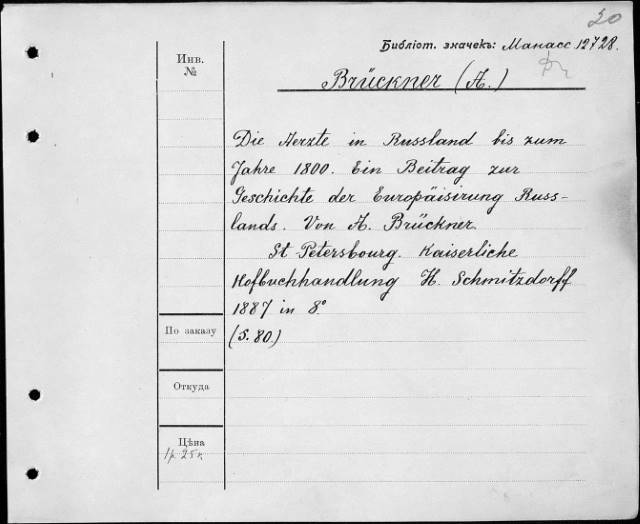 20
Библіот. значекъ: Манасс 12728.
Инв.
№
Brückner (A.)
Die Aerzte in Russland bis zum
Jahre 1800. Ein Beitrag zur
Geschichte der Europäisirung Russ-
lands. Von A. Brückner.
St-Petersbourg. Kaiserliche
Hofbuchhandlung H. Schmitzdorff
1887 in 8°
(S. 80.)
По заказу
Откуда
Цѣна
1р 25к